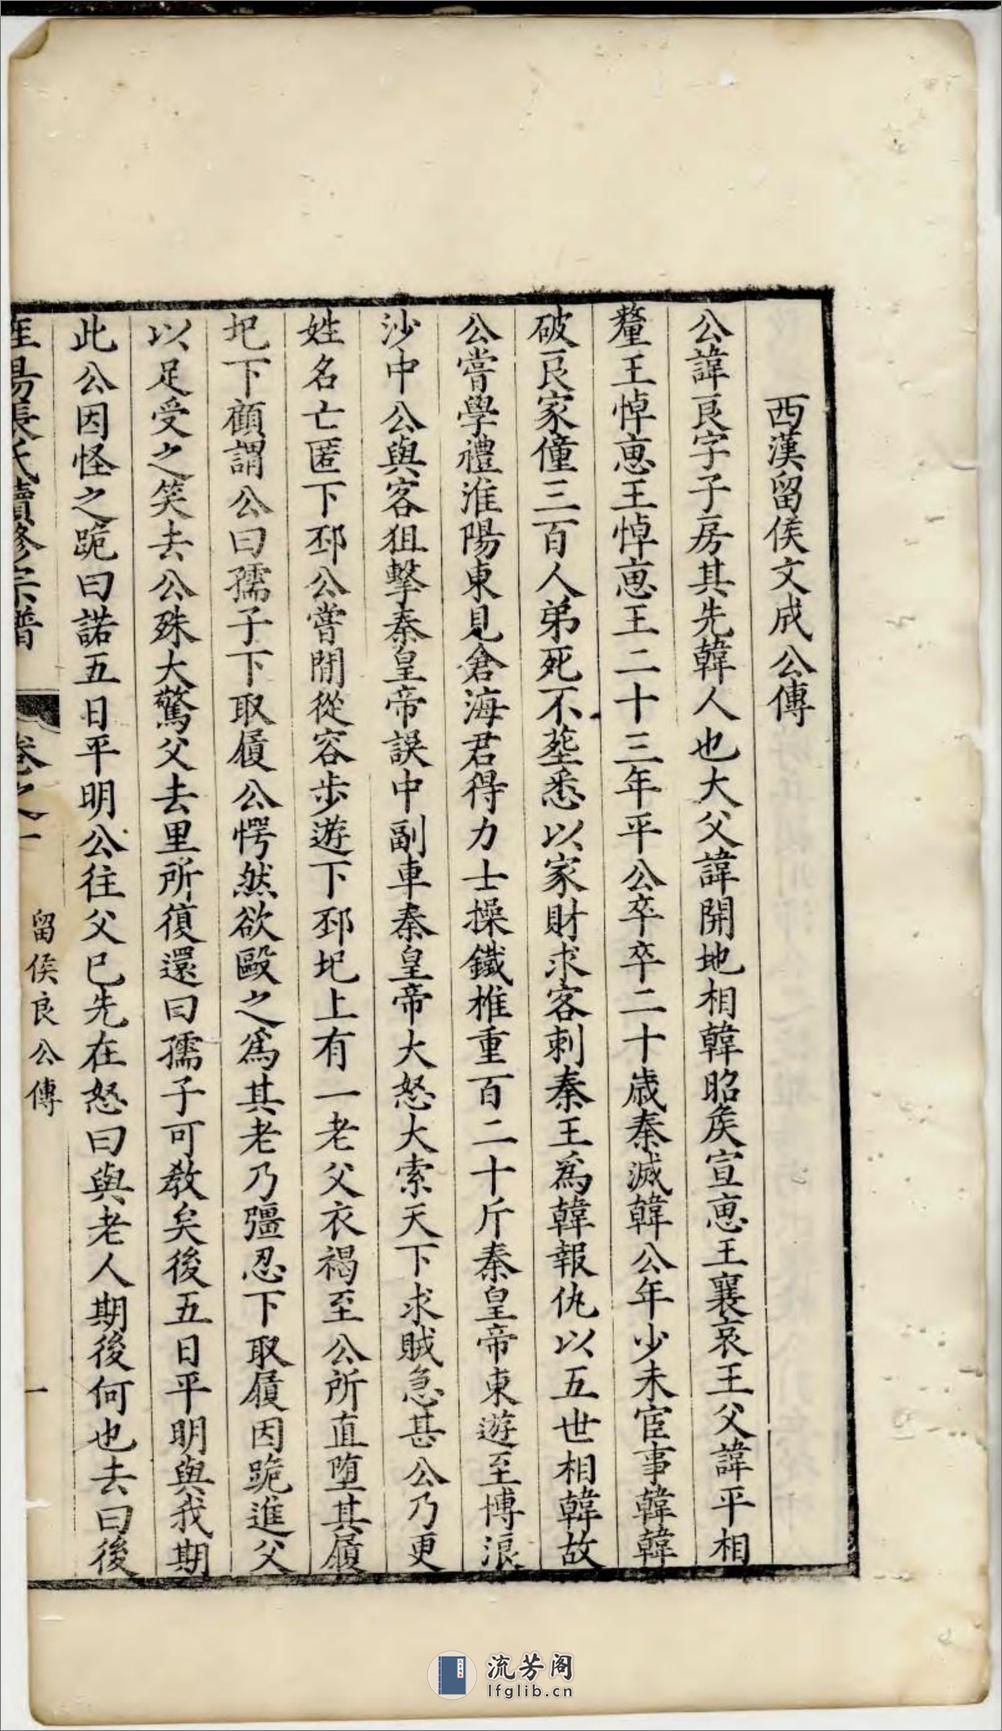 西漢留侯文成公傳
公諱良字子房其先韓人也大父諱開地相韓昭矦宣恵王襄哀王父諱平相
釐王悼恵王悼恵王二十三年平公卒卒二十歳秦滅韓公年少未宦事韓韓
破良家僮三百人弟死不塟悉以家財求客刺秦王爲韓報仇以五世相韓故
公嘗學禮淮陽東見倉海君得力士操鐵椎重百二十斤秦皇帝東遊至博浪
沙中公與客狙擊秦皇帝誤中副車秦皇帝大怒大索天下求賊急甚公乃更
姓名亡匿下邳公嘗閒從容步遊下邳圯上有一老父衣褐至公所直堕其履
圯下顧謂公曰孺子下取履公愕然欲毆之爲其老乃彊忍下取履因跪進父
以足受之笑去公殊大驚父去里所復還曰孺子可敎矣後五日平明與我期
此公因怪之跪曰諾五日平明公往父已先在怒曰與老人期後何也去曰後
張氏續修宗譜 卷之一 留侯良公傳 一
流芳阁
lfglib.cn